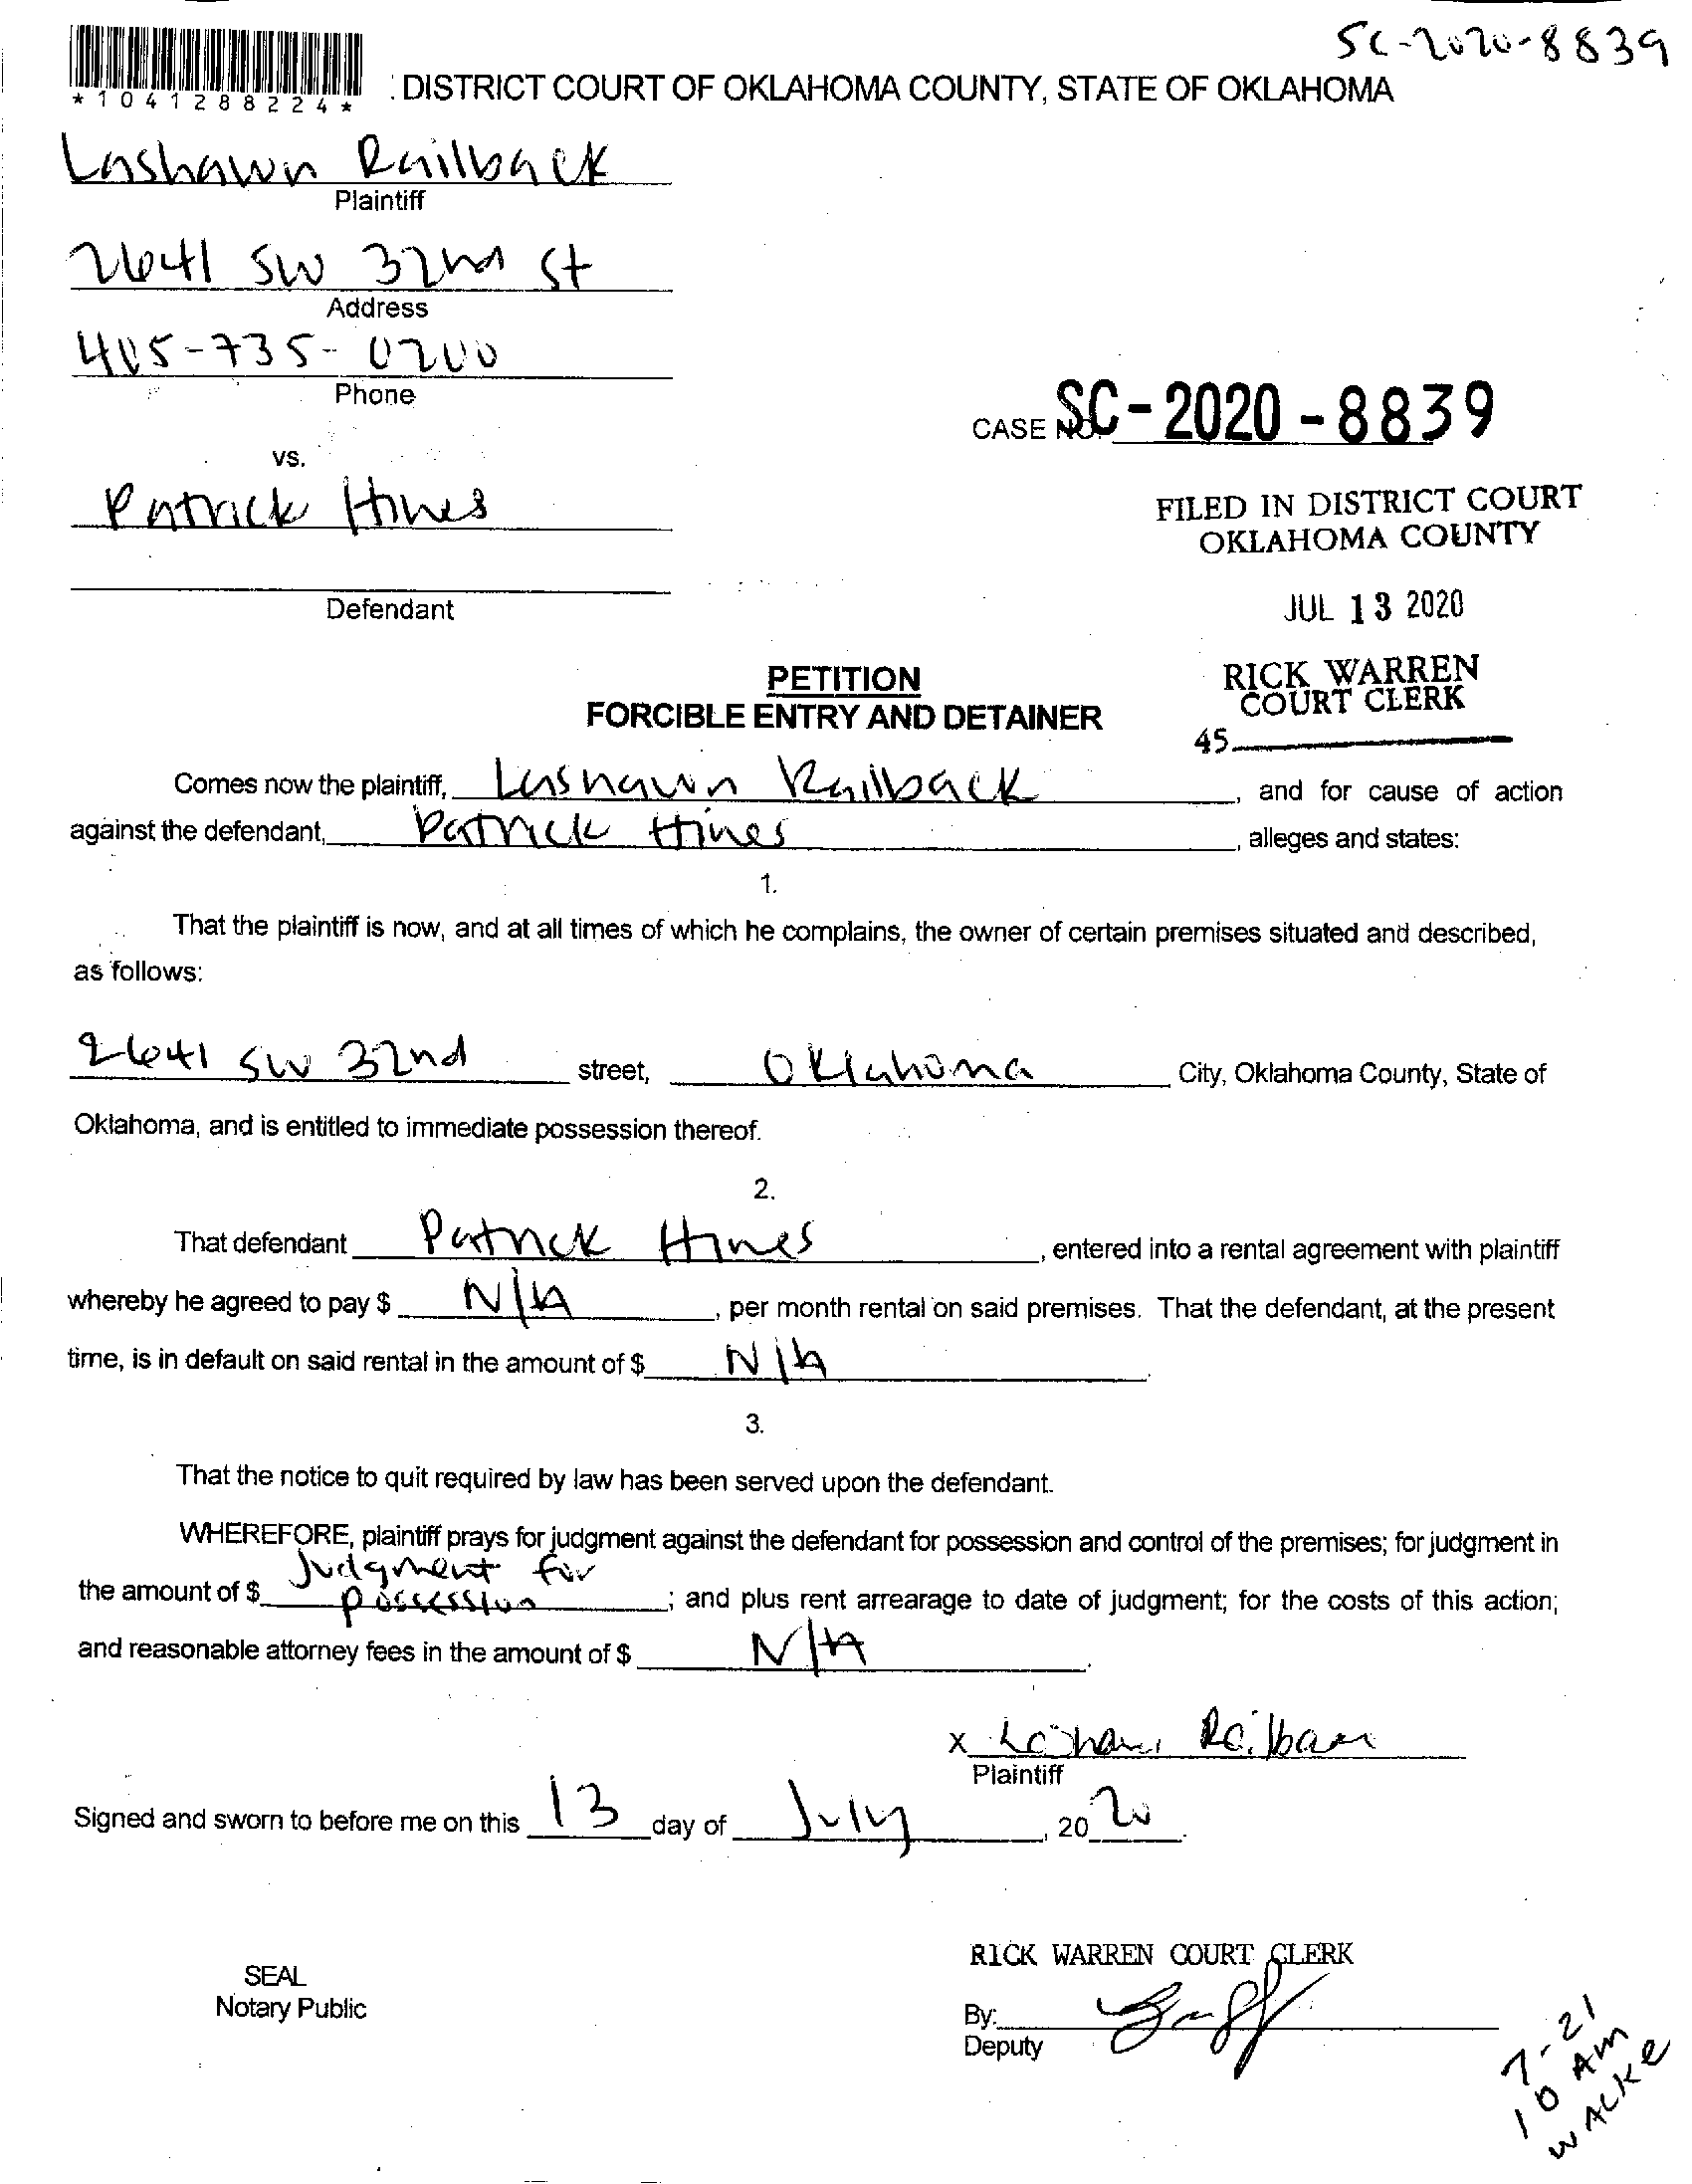 SC-2020-8839
*1041288224*
: DISTRICT COURT OF OKLAHOMA COUNTY, STATE OF OKLAHOMA
Lashawn Railback
Plaintiff
2641 SW 32nd St
Address
405-735-0200
Phone
CASE NO. SC-2020-8839
vs.
Patrick Hines
FILED IN DISTRICT COURT
OKLAHOMA COUNTY
Defendant
JUL 13 2020
PETITION
FORCIBLE ENTRY AND DETAINER
RICK WARREN
COURT CLERK
45
Comes now the plaintiff, Lashawn Railback, and for cause of action
against the defendant, Patrick Hines, alleges and states:
1.
That the plaintiff is now, and at all times of which he complains, the owner of certain premises situated and described,
as follows:
2641 SW 32nd street, Oklahoma City, Oklahoma County, State of
Oklahoma, and is entitled to immediate possession thereof.
2.
That defendant Patrick Hines, entered into a rental agreement with plaintiff
whereby he agreed to pay $ N/A, per month rental on said premises. That the defendant, at the present
time, is in default on said rental in the amount of $ N/A.
3.
That the notice to quit required by law has been served upon the defendant.
WHEREFORE, plaintiff prays for judgment against the defendant for possession and control of the premises; for judgment in
the amount of $ Judgment for possession; and plus rent arrearage to date of judgment; for the costs of this action;
and reasonable attorney fees in the amount of $ N/A.
X Lashawn Railback
Plaintiff
Signed and sworn to before me on this 13 day of July, 2020.
RICK WARREN COURT CLERK
SEAL
Notary Public
By:
Deputy
7-21
10 AM
WACKE